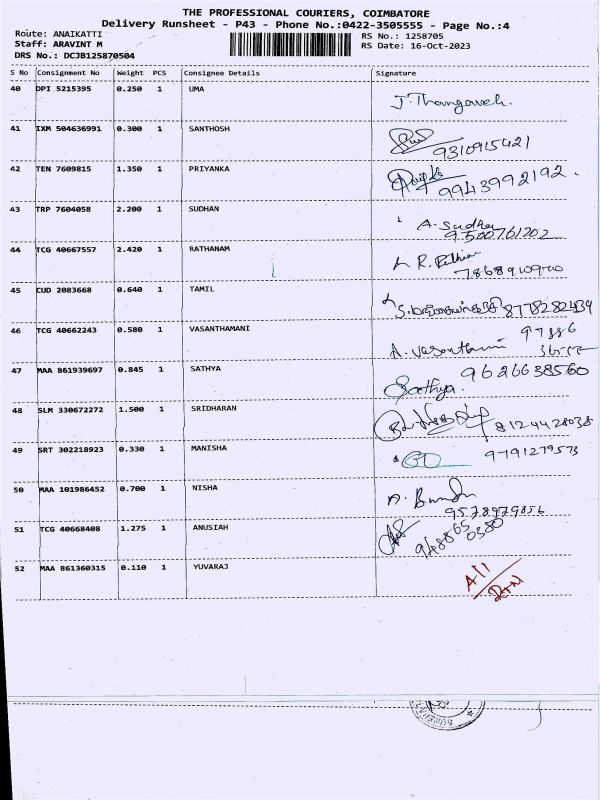 THE PROFESSIONAL COURIERS, COIMBATORE
Delivery Runsheet - P43 - Phone No.:0422-3505555 - Page No.:4
Route: ANAIKATTI RS No.: 1258705
Staff: ARAVINT M RS Date: 16-Oct-2023
DRS No.: DCJB125870504
S No Consignment No Weight PCS Consignee Details Signature
40 DPI 5215395 0.250 1 UMA J. Thangavel.
41 IXM 504636991 0.300 1 SANTHOSH
9310915421
42 TEN 7609815 1.350 1 PRIYANKA
9943992192.
43 TRP 7604058 2.200 1 SUDHAN A. Sudhan
9500761202
44 TCG 40667557 2.420 1 RATHANAM R.
45 CUD 2083668 0.640 1 TAMIL
46 TCG 40662243 0.580 1 VASANTHAMANI A. Vasanthamani
47 MAA 861939697 0.845 1 SATHYA 9626638560
Sathya
48 SLM 330672272 1.500 1 SRIDHARAN
8124428038
49 SRT 302218923 0.330 1 MANISHA 9791279573
50 MAA 101986452 0.700 1 NISHA
51 TCG 40668408 1.275 1 ANUSIAH
52 MAA 861360315 0.110 1 YUVARAJ All
RTN